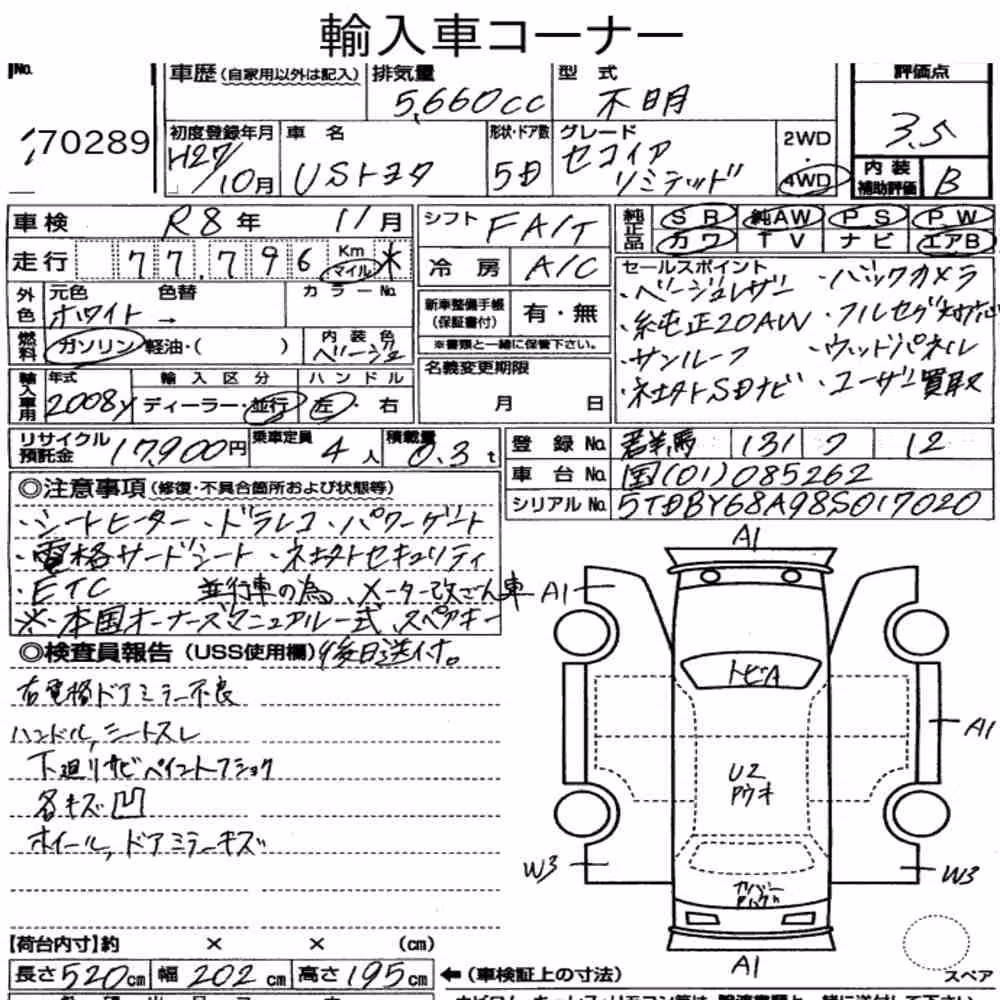 輸入車コーナー
No.
車歴(自家用以外は記入)
排気量
5,660cc
型式
不明
評価点
3.5
170289
初度登録年月
H27/10月
車名
USトヨタ
形状・ドア数
5D
グレード
セコイア
リミテッド
2WD
・
4WD
内装
補助評価
B
車検 R8年 11月
シフト FA/T
純正品
SR 純AW PS PW
カワ TV ナビ エアB
走行 77,796 Km マイル ※
冷房 A/C
セールスポイント
・ベージュレザー ・バックカメラ
・純正20AW ・フルセグ対応
・サンルーフ ・ウッドパネル
・社外SDナビ ・ユーザー買取
外色
元色 色替 カラーNo.
ホワイト →
新車整備手帳
(保証書付)
有・無
※書類と一緒に保管下さい。
燃料
ガソリン・軽油・( )
内装色
ベージュ
名義変更期限
月 日
輸入車用
年式
2008y
輸入区分
ディーラー・並行
ハンドル
左・右
リサイクル
預託金
17,900円
乗車定員
4人
積載量
0.3t
登録No. 群馬 131 フ 12
車台No. 国(01)085262
シリアルNo. 5TDBY68A98S017020
◎注意事項(修復・不具合箇所および状態等)
・シートヒーター ・ドラレコ ・パワーゲート
・電格サードシート ・社外セキュリティ
・ETC 並行車の為、メーター改ざん車
※本国オーナーズマニュアル一式、スペアキー
後日送付。
◎検査員報告(USS使用欄)
右電格ドアミラー不良
ハンドル、シートスレ
下廻りサビペイントフショク
各キズ凹
ホイール、ドアミラーキズ
A1
A1
トビA
A1
U2
Pウキ
W3
W3
カバー
A1
スペア
【荷台内寸】約 × × (cm)
長さ520cm 幅202cm 高さ195cm
←(車検証上の寸法)